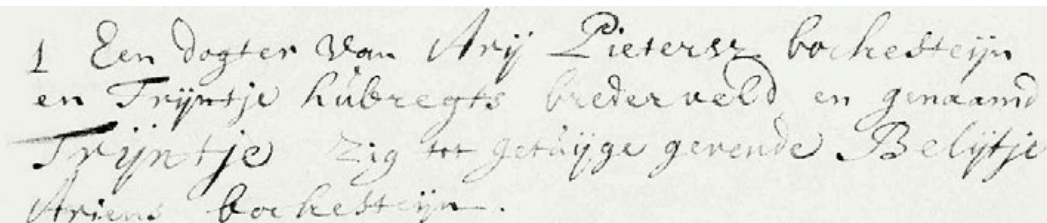 1 Een dogter van Arij Pietersz bochesteijn
en Trijntje hŭbregts brederveld en genaamd
Trijntje zig tot getŭijge gevende Belijtje
Ariens bochesteijn.